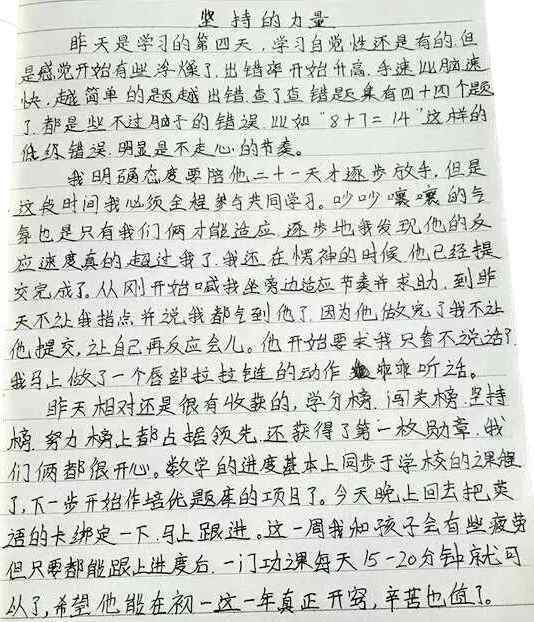 坚持的力量
昨天是学习的第四天,学习自觉性还是有的.但
是感觉开始有些浮燥了.出错率开始升高.手速比脑速
快,越简单的题越出错.查了查错题集有四十四个题
了.都是些不过脑子的错误.比如“8+7=14”这样的
低级错误.明显是不走心的节奏。
我明确态度要陪他二十一天才逐步放手,但是
这段时间我必须全程参与共同学习。吵吵嚷嚷的气
氛也是只有我们俩才能适应.逐步地我发现他的反
应速度真的超过我了.我还在愣神的时候他已经提
交完成了。从刚开始喊我坐旁边适应节奏并求助.到昨
天不让我指点并说我都气到他了.因为他做完了我不让
他提交,让自己再反应会儿。他开始要求我只看不说话了.
我马上做了一个唇部拉拉链的动作 乖乖听话。
昨天相对还是很有收获的,学分榜.闯关榜.坚持
榜.努力榜上都占据领先.还获得了第一枚勋章.我
们俩都很开心。数学的进度基本上同步于学校的课程
了,下一步开始作培优题库的项目了。今天晚上回去把英
语的卡绑定一下.马上跟进。这一周我和孩子会有些疲劳
但只要都能跟上进度后.一门功课每天15-20分钟就可
以了,希望他能在初一这一年真正开窍,辛苦也值了。